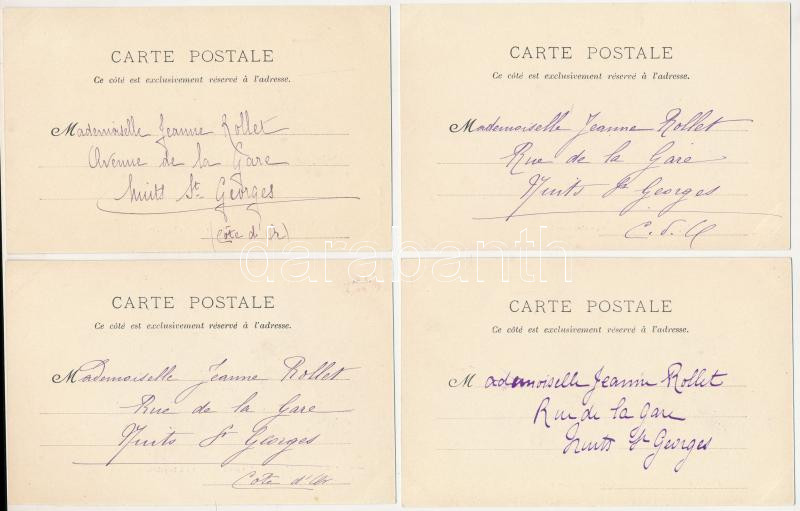 CARTE POSTALE
Ce côté est exclusivement réservé à l'adresse.
Mademoiselle Jeanne Rollet
Avenue de la Gare
Nuits St. Georges
(Côte d'Or)
CARTE POSTALE
Ce côté est exclusivement réservé à l'adresse.
Mademoiselle Jeanne Rollet
Rue de la Gare
Nuits St Georges
C. d. O
CARTE POSTALE
Ce côté est exclusivement réservé à l'adresse.
Mademoiselle Jeanne Rollet
Rue de la Gare
Nuits St Georges
Cote d'Or
CARTE POSTALE
Ce côté est exclusivement réservé à l'adresse.
Mademoiselle Jeanne Rollet
Rue de la Gare
Nuits St Georges
darabanth